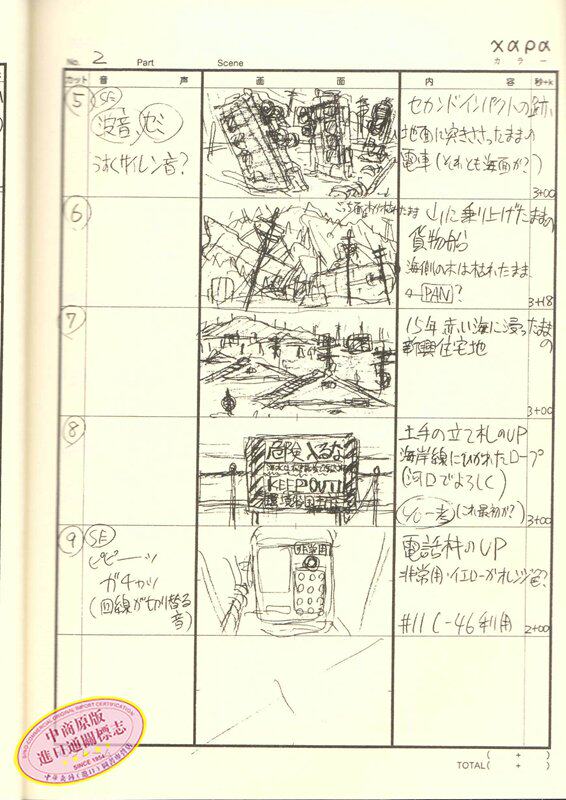 χαρα
カラー
No. 2 Part Scene
カット 音 声 画 面 内 容 秒+k
5
SE
波音、セミ
うすくサイレン音?
セカンドインパクトの跡、
地面に突きささったままの
電車(それとも海面か?)
3+00
6
山に乗り上げたままの
貨物船
海側の木は枯れたまま
PAN?
3+18
7
15年赤い海に浸ったままの
新興住宅地
3+00
8
危険 入るな
KEEP OUT!!
土手の立て札のUP
海岸線にひかれたロープ
(河口でよろしく)
(これ最初か?)
3+00
9
SE
ピピーーッ
ガチャッ
(回線が切り替る
音)
非常用
電話機のUP
非常用・イエローかオレンジ色?
#11 C-46 利用
2+00
TOTAL( + )
( + )
中商原版
進口通關標志
SINCE 1954